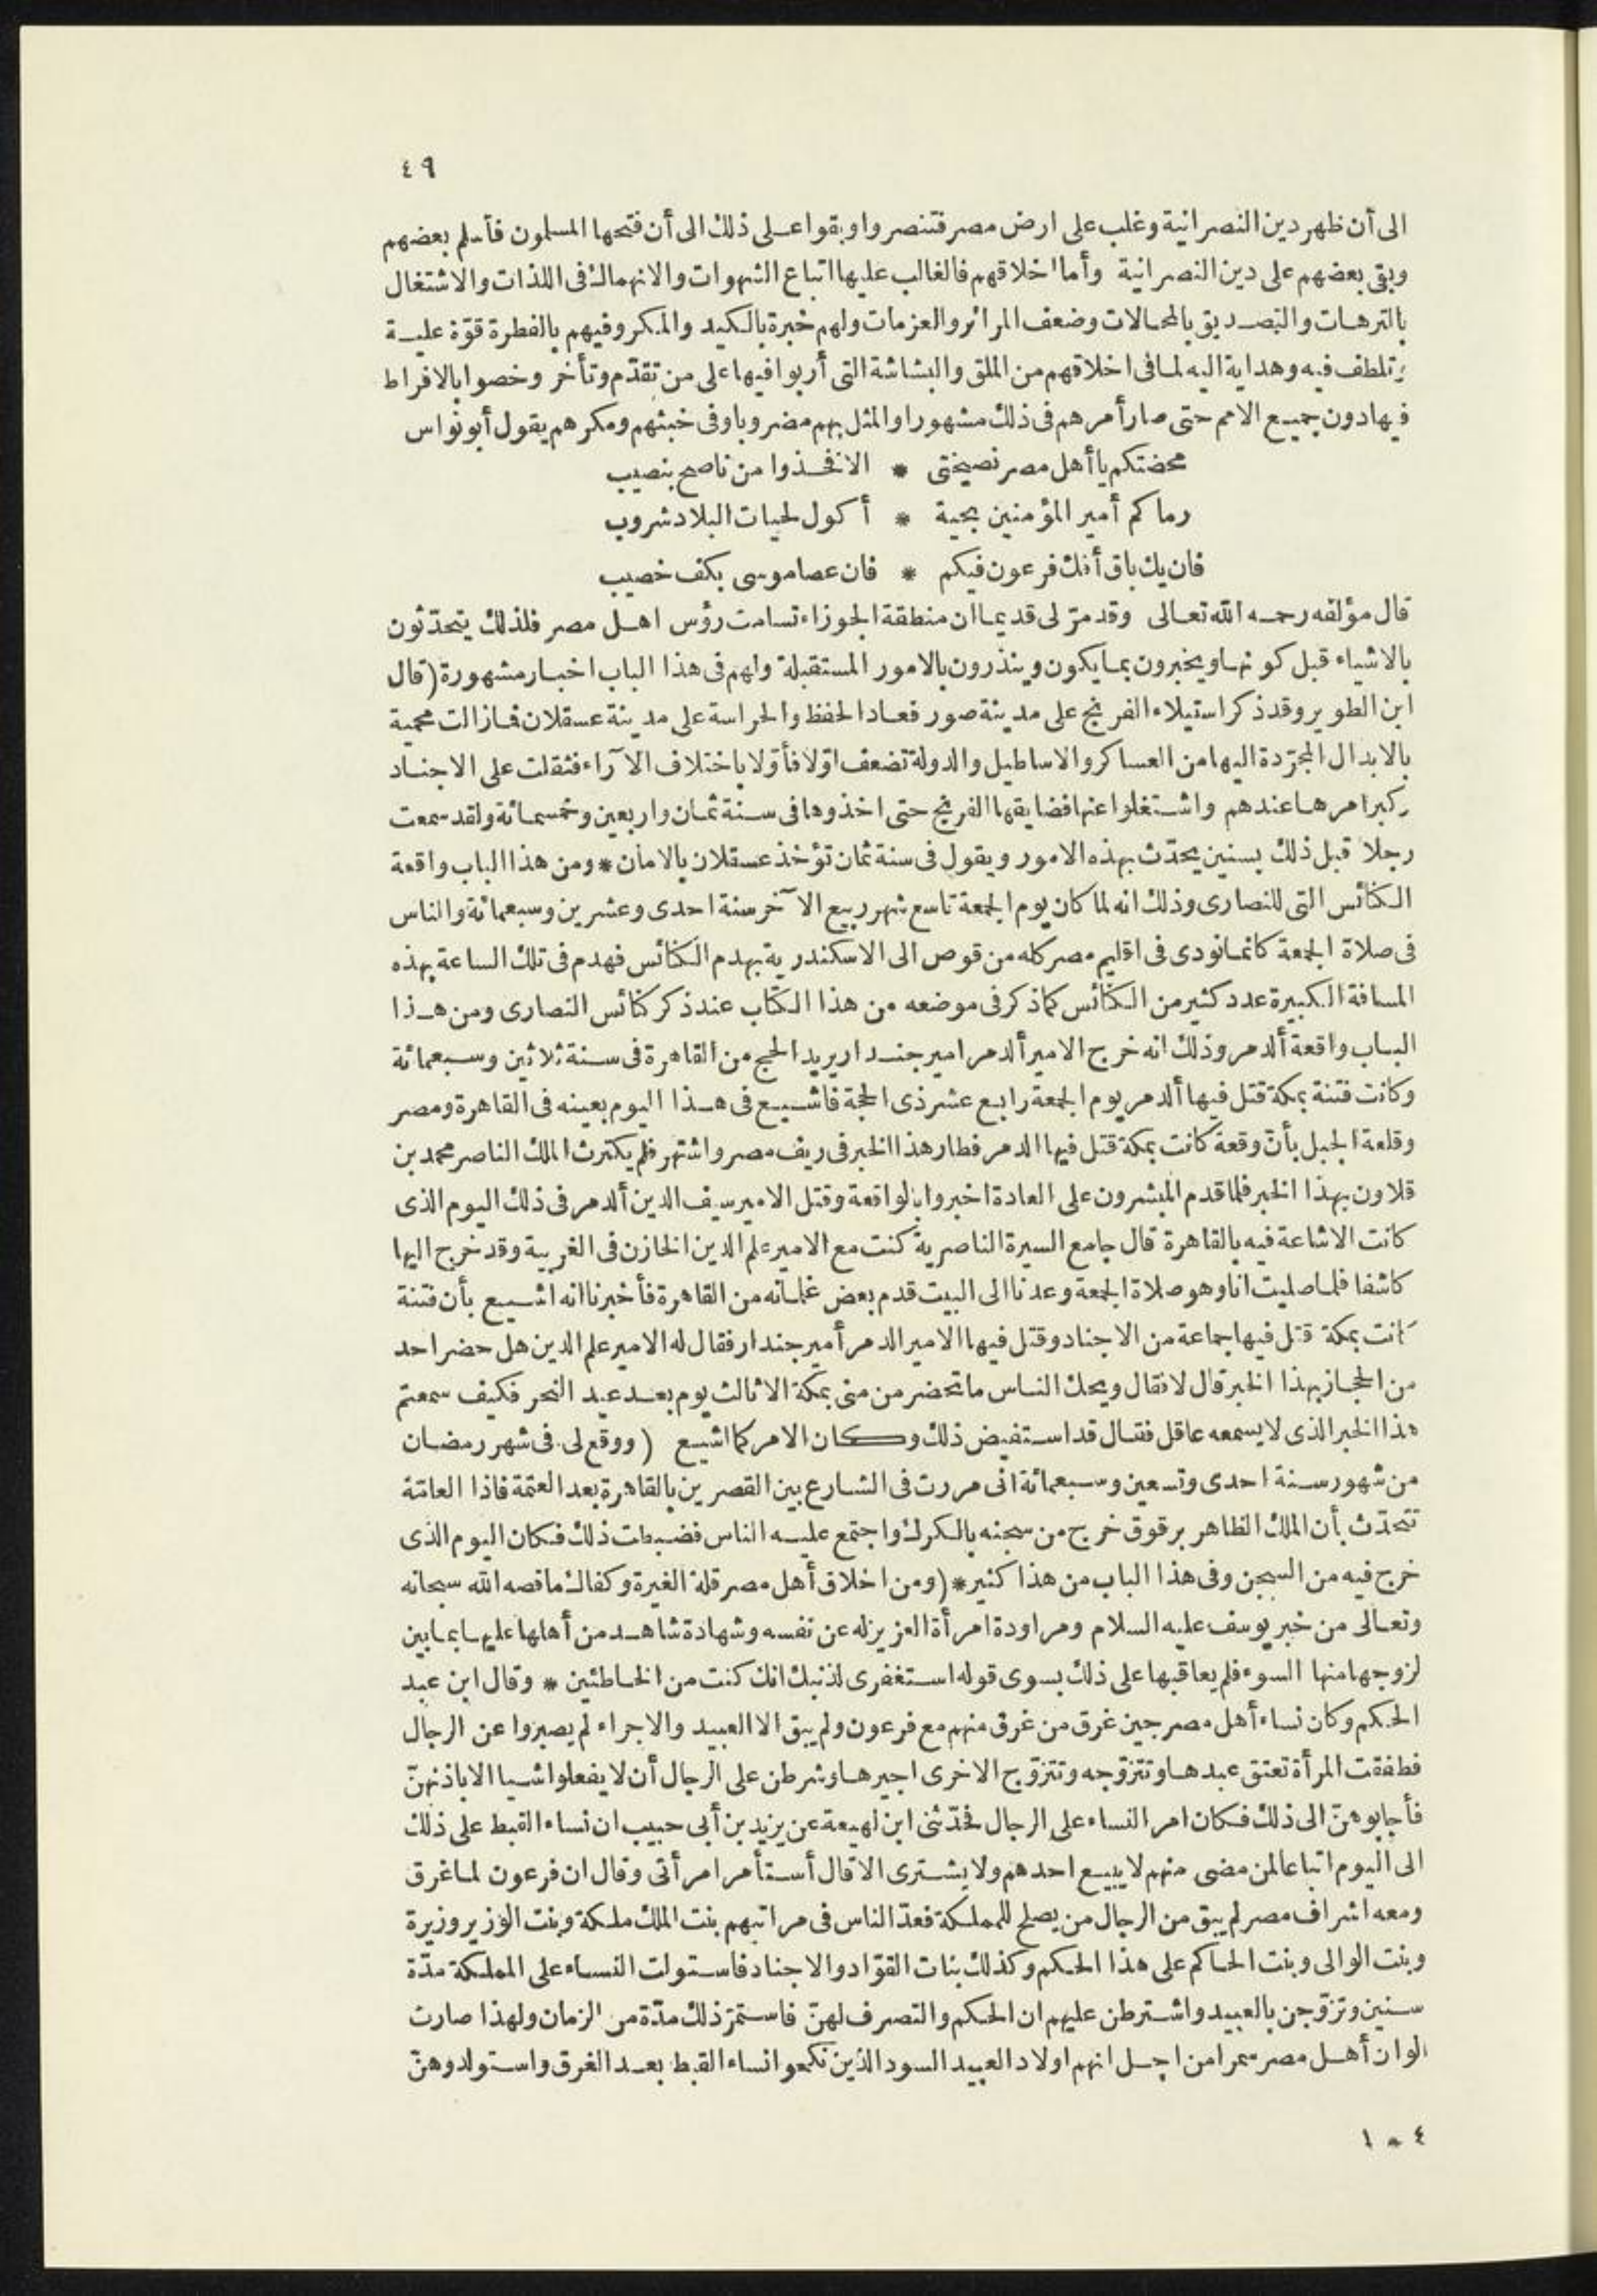 ٤٩
الى أن ظهر دين النصرانية وغلب على ارض مصر فتنصروا وبقوا على ذلك الى أن فتحها المسلمون فأسلم بعضهم
وبقى بعضهم على دين النصرانية وأما اخلاقهم فالغالب عليها اتباع الشهوات والانهماك فى اللذات والاشتغال
بالترهات والتصديق بالمحالات وضعف المرائر والعزمات ولهم خبرة بالكيد والمكر وفيهم بالفطرة قوّة عليه
وتلطف فيه وهداية اليه لما فى اخلاقهم من الملق والبشاشة التى أربوا فيها على من تقدّم وتأخر وخصوا بالافراط
فيها دون جميع الامم حتى صار أمرهم فى ذلك مشهورا والمثل بهم مضروبا وفى خبثهم ومكرهم يقول أبو نواس
محضتكم يا أهل مصر نصيحتى * الا فخذوا من ناصح بنصيب
رماكم أمير المؤمنين بحية * أكول لحيات البلاد شروب
فان يك باق أفك فرعون فيكم * فان عصا موسى بكف خصيب
قال مؤلفه رحمه الله تعالى وقد مرّ لى قديما ان منطقة الجوزاء تسامت رؤس اهل مصر فلذلك يتحدّثون
بالاشياء قبل كونها ويخبرون بما يكون وينذرون بالامور المستقبلة ولهم فى هذا الباب اخبار مشهورة (قال
ابن الطوير وقد ذكر استيلاء الفرنج على مدينة صور فعاد الحفظ والحراسة على مدينة عسقلان فما زالت محمية
بالابدال المجرّدة اليها من العساكر والاساطيل والدولة تضعف اوّلا فأوّلا باختلاف الآراء فثقلت على الاجناد
وكبر امرها عندهم واشتغلوا عنها فضايقها الفرنج حتى اخذوها فى سنة ثمان واربعين وخمسمائة ولقد سمعت
رجلا قبل ذلك بسنين يحدّث بهذه الامور ويقول فى سنة ثمان تؤخذ عسقلان بالامان * ومن هذا الباب واقعة
الكنائس التى للنصارى وذلك انه لما كان يوم الجمعة تاسع شهر ربيع الآخر سنة احدى وعشرين وسبعمائة والناس
فى صلاة الجمعة كانما نودى فى اقليم مصر كله من قوص الى الاسكندرية بهدم الكنائس فهدم فى تلك الساعة بهذه
المسافة الكبيرة عدد كثير من الكنائس كما ذكر فى موضعه من هذا الكتاب عند ذكر كنائس النصارى ومن هذا
الباب واقعة ألدمر وذلك انه خرج الامير ألدمر امير جندار يريد الحج من القاهرة فى سنة ثلاثين وسبعمائة
وكانت فتنة بمكة قتل فيها ألدمر يوم الجمعة رابع عشر ذى الحجة فاشيع فى هذا اليوم بعينه فى القاهرة ومصر
وقلعة الجبل بأنّ وقعة كانت بمكة قتل فيها الدمر فطار هذا الخبر فى ريف مصر واشتهر فلم يكترث الملك الناصر محمد بن
قلاون بهذا الخبر فلما قدم المبشرون على العادة اخبروا بالواقعة وقتل الامير سيف الدين ألدمر فى ذلك اليوم الذى
كانت الاشاعة فيه بالقاهرة قال جامع السيرة الناصرية كنت مع الامير علم الدين الخازن فى الغربية وقد خرج اليها
كاشفا فلما صليت انا وهو صلاة الجمعة وعدنا الى البيت قدم بعض غلمانه من القاهرة فأخبرنا انه اشيع بأن فتنة
كانت بمكة قتل فيها جماعة من الاجناد وقتل فيها الامير الدمر أمير جندار فقال له الامير علم الدين هل حضر احد
من الحجاز بهذا الخبر قال لا فقال ويحك الناس ما تحضر من منى بمكة الا ثالث يوم بعد عيد النحر فكيف سمعتم
هذا الخبر الذى لا يسمعه عاقل فقال قد استفيض ذلك وكان الامر كما اشيع (ووقع لى فى شهر رمضان
من شهور سنة احدى وتسعين وسبعمائة انى مررت فى الشارع بين القصرين بالقاهرة بعد العتمة فاذا العامّة
تتحدّث بأن الملك الظاهر برقوق خرج من سجنه بالكرك واجتمع عليه الناس فضبطت ذلك فكان اليوم الذى
خرج فيه من السجن وفى هذا الباب من هذا كثير * (ومن اخلاق أهل مصر قلة الغيرة وكفاك ما قصه الله سبحانه
وتعالى من خبر يوسف عليه السلام ومراودة امرأة العزيز له عن نفسه وشهادة شاهد من أهلها عليها بما بين
لزوجها منها السوء فلم يعاقبها على ذلك بسوى قوله استغفرى لذنبك انك كنت من الخاطئين * وقال ابن عبد
الحكم وكان نساء أهل مصر حين غرق من غرق منهم مع فرعون ولم يبق الا العبيد والاجراء لم يصبروا عن الرجال
فطفقت المرأة تعتق عبدها وتتزوّجه وتتزوّج الاخرى اجيرها وشرطن على الرجال أن لا يفعلوا شيا الا باذنهنّ
فأجابوهنّ الى ذلك فكان امر النساء على الرجال فحدّثنى ابن لهيعة عن يزيد بن أبى حبيب ان نساء القبط على ذلك
الى اليوم اتباعا لمن مضى منهم لا يبيع احدهم ولا يشترى الا قال أستأمر امرأتى وقال ان فرعون لما غرق
ومعه اشراف مصر لم يبق من الرجال من يصلح للمملكة فعدّ الناس فى مراتبهم بنت الملك ملكة وبنت الوزير وزيرة
وبنت الوالى وبنت الحاكم على هذا الحكم وكذلك بنات القوّاد والاجناد فاستولت النساء على المملكة مدّة
سنين وتزوّجن بالعبيد واشترطن عليهم ان الحكم والتصرف لهنّ فاستمرّ ذلك مدّة من الزمان ولهذا صارت
الوان أهل مصر سمرا من اجل انهم اولاد العبيد السود الذين نكحوا نساء القبط بعد الغرق واستولدوهنّ
٤ - ١